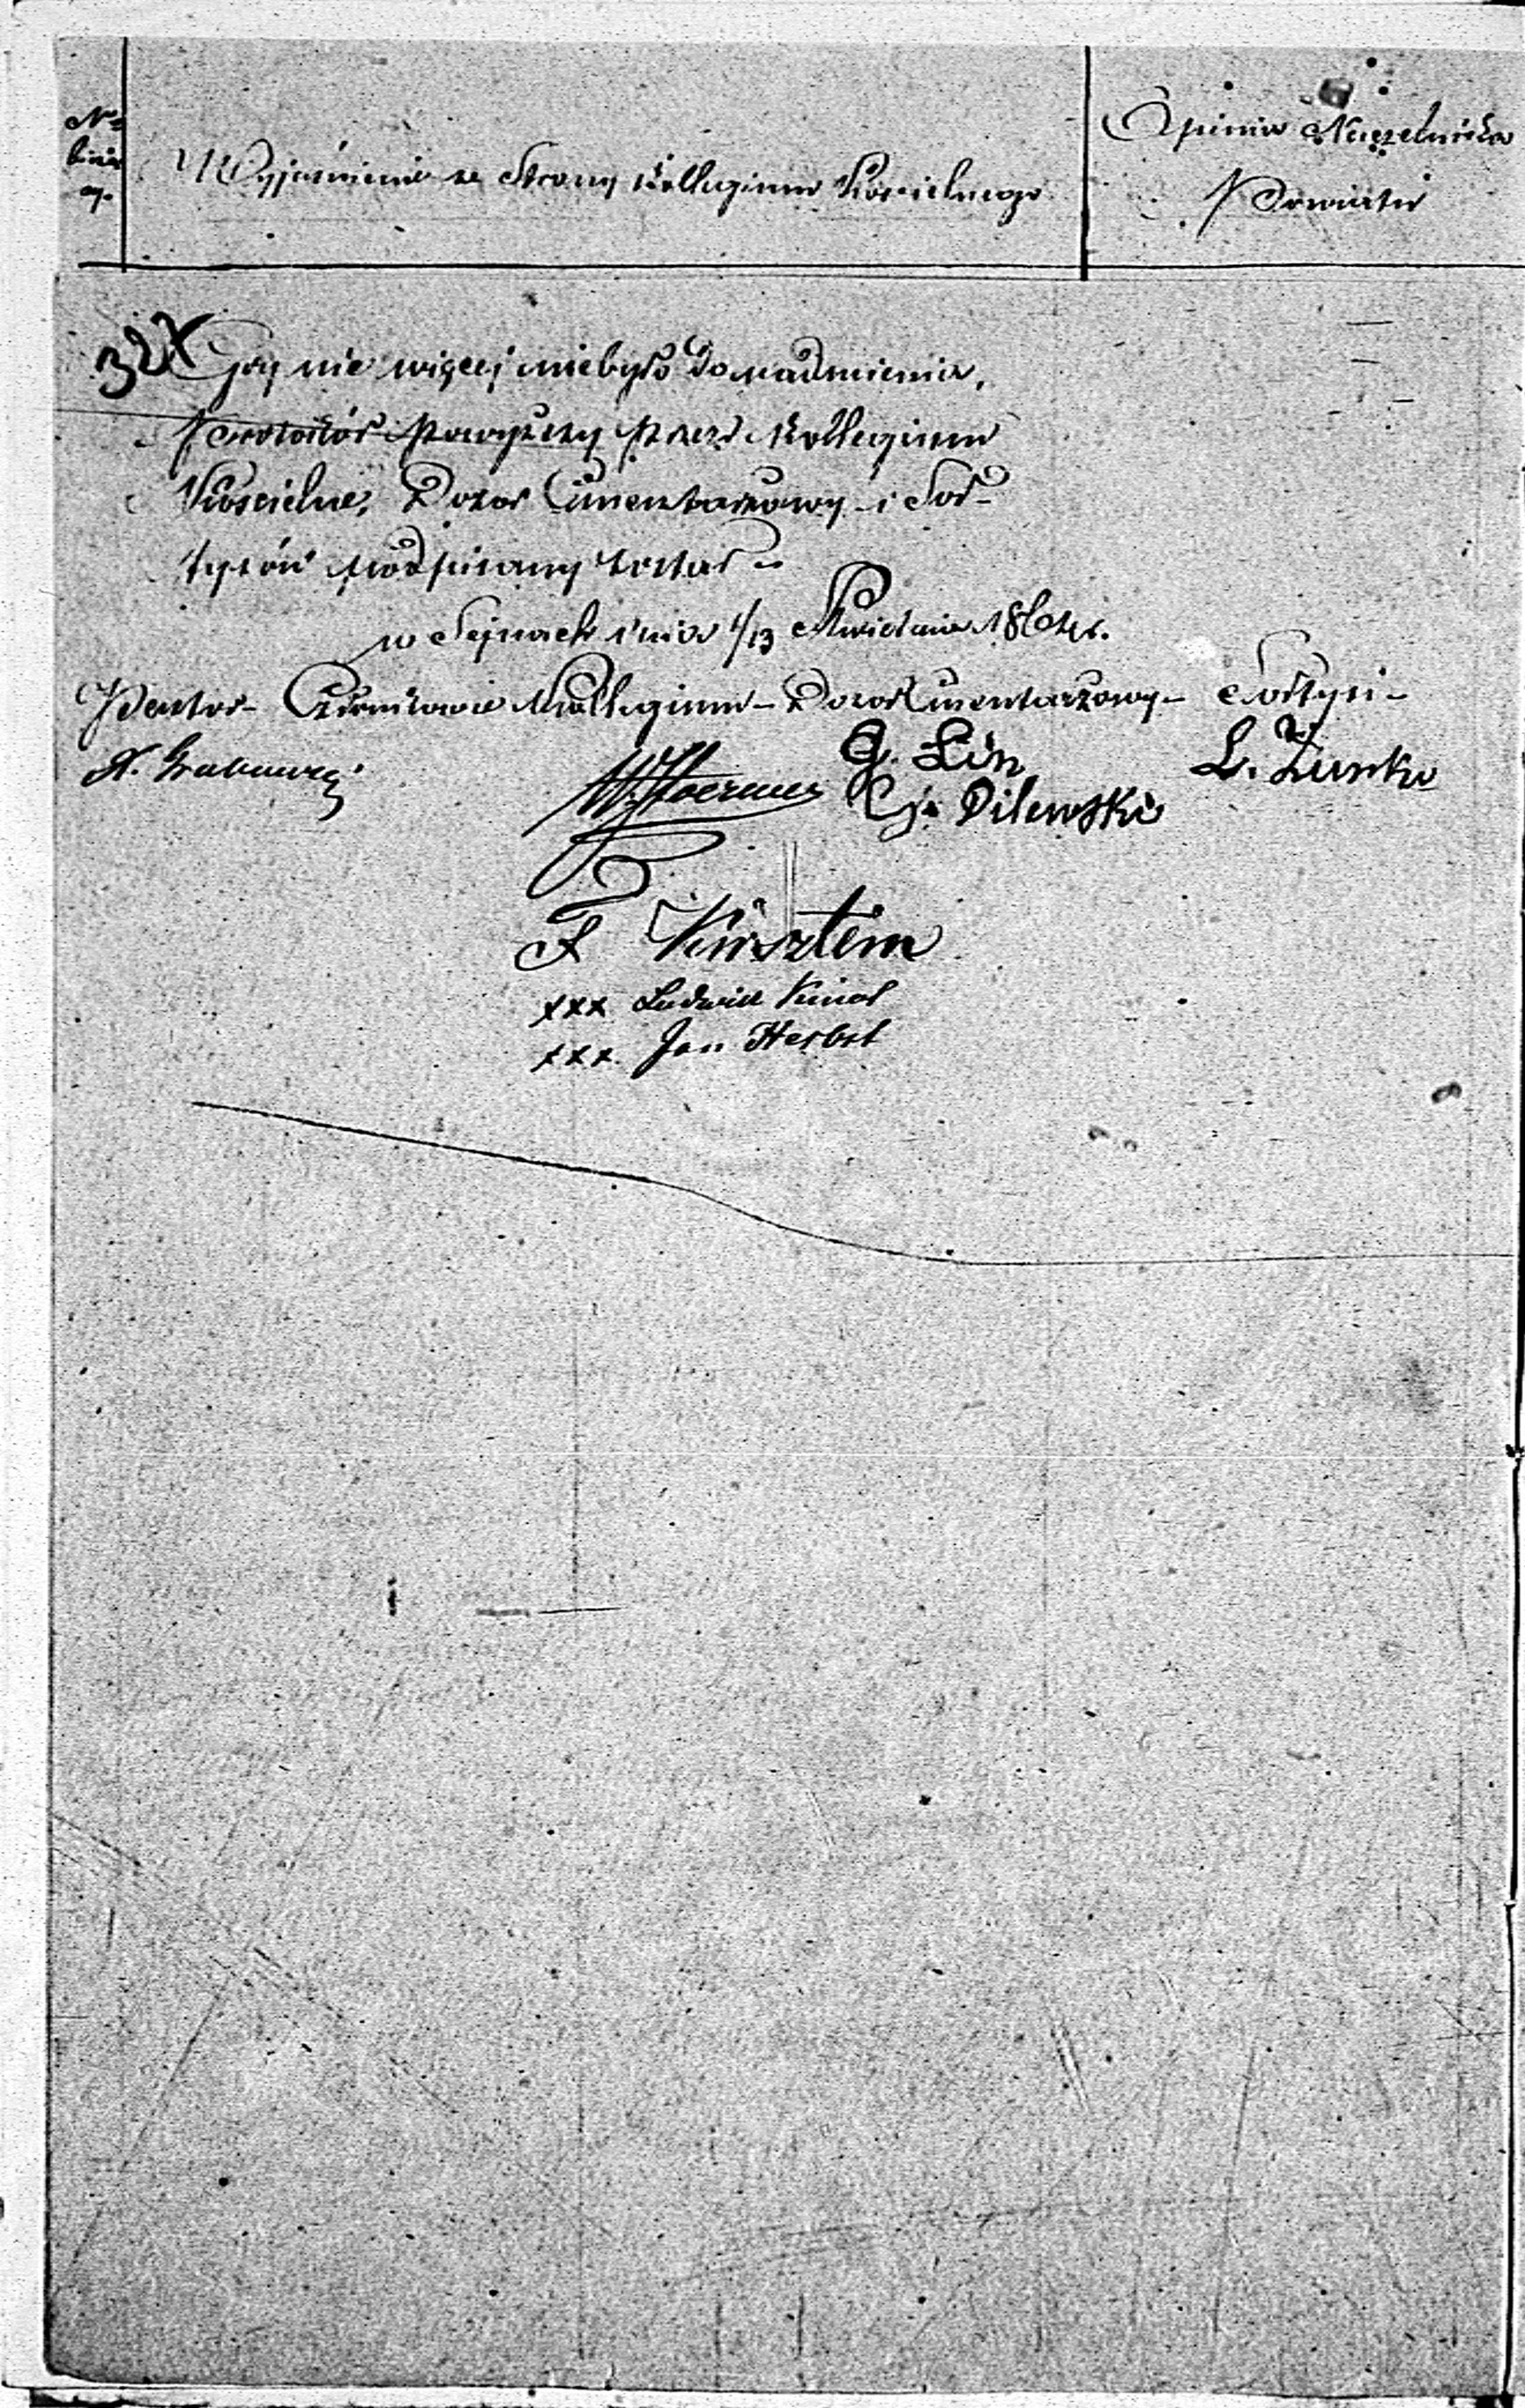 No
Wyjaśnienie ze Strony Kollegium Kościelnego
Opinia Naczelnika
Powiatu
32
Gdy nic więcej niebyło do nadmienia,
Protokół powyższy przez Kollegium
Kościelne, Dozór Cmentarzowy i Soł-
tysów podpisany został
w Sejnach dnia 1/13 Kwietnia 1864 r.
Pastor - Członkowie Kollegium - Dozór Cmentarzowy - Sołtysi -
G. Lin
L. Żunko
G. Dilewski
F Kirsztein
xxx Ludwik
xxx. Jan Herbst